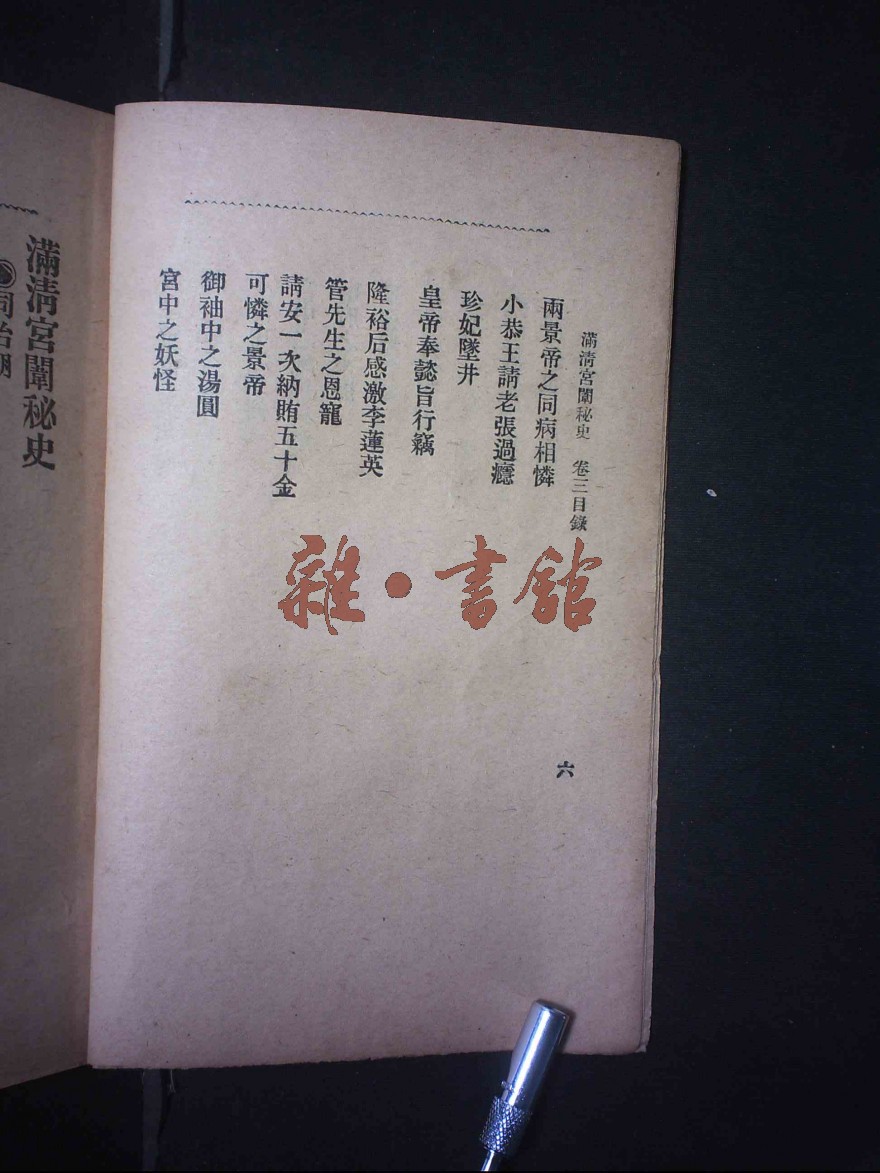 滿淸宮闈秘史 卷三目錄
六
兩景帝之同病相憐
小恭王請老張過癮
珍妃墜井
皇帝奉懿旨行竊
隆裕后感激李蓮英
管先生之恩寵
請安一次納賄五十金
可憐之景帝
御袖中之湯圓
宮中之妖怪
滿淸宮闈秘史
雜·書館